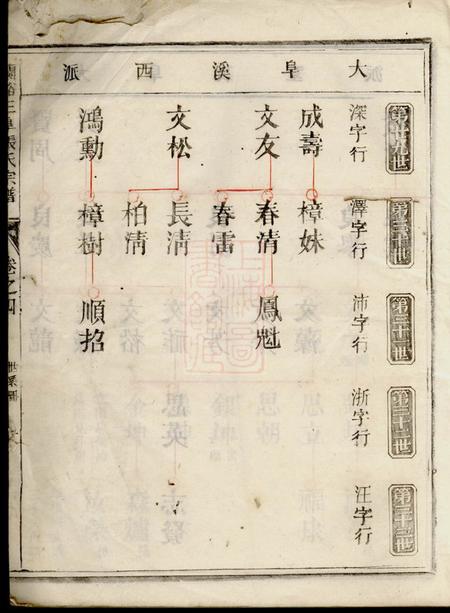 大阜溪西派
第廿九世
第三十世
第三十一世
第三十二世
第三十三世
深字行
澤字行
沛字行
浙字行
汪字行
成壽
樟妹
文友
春清
鳳魁
春雷
文松
長清
柏清
鴻勳
樟樹
順招
張氏宗譜
卷之四
世系圖